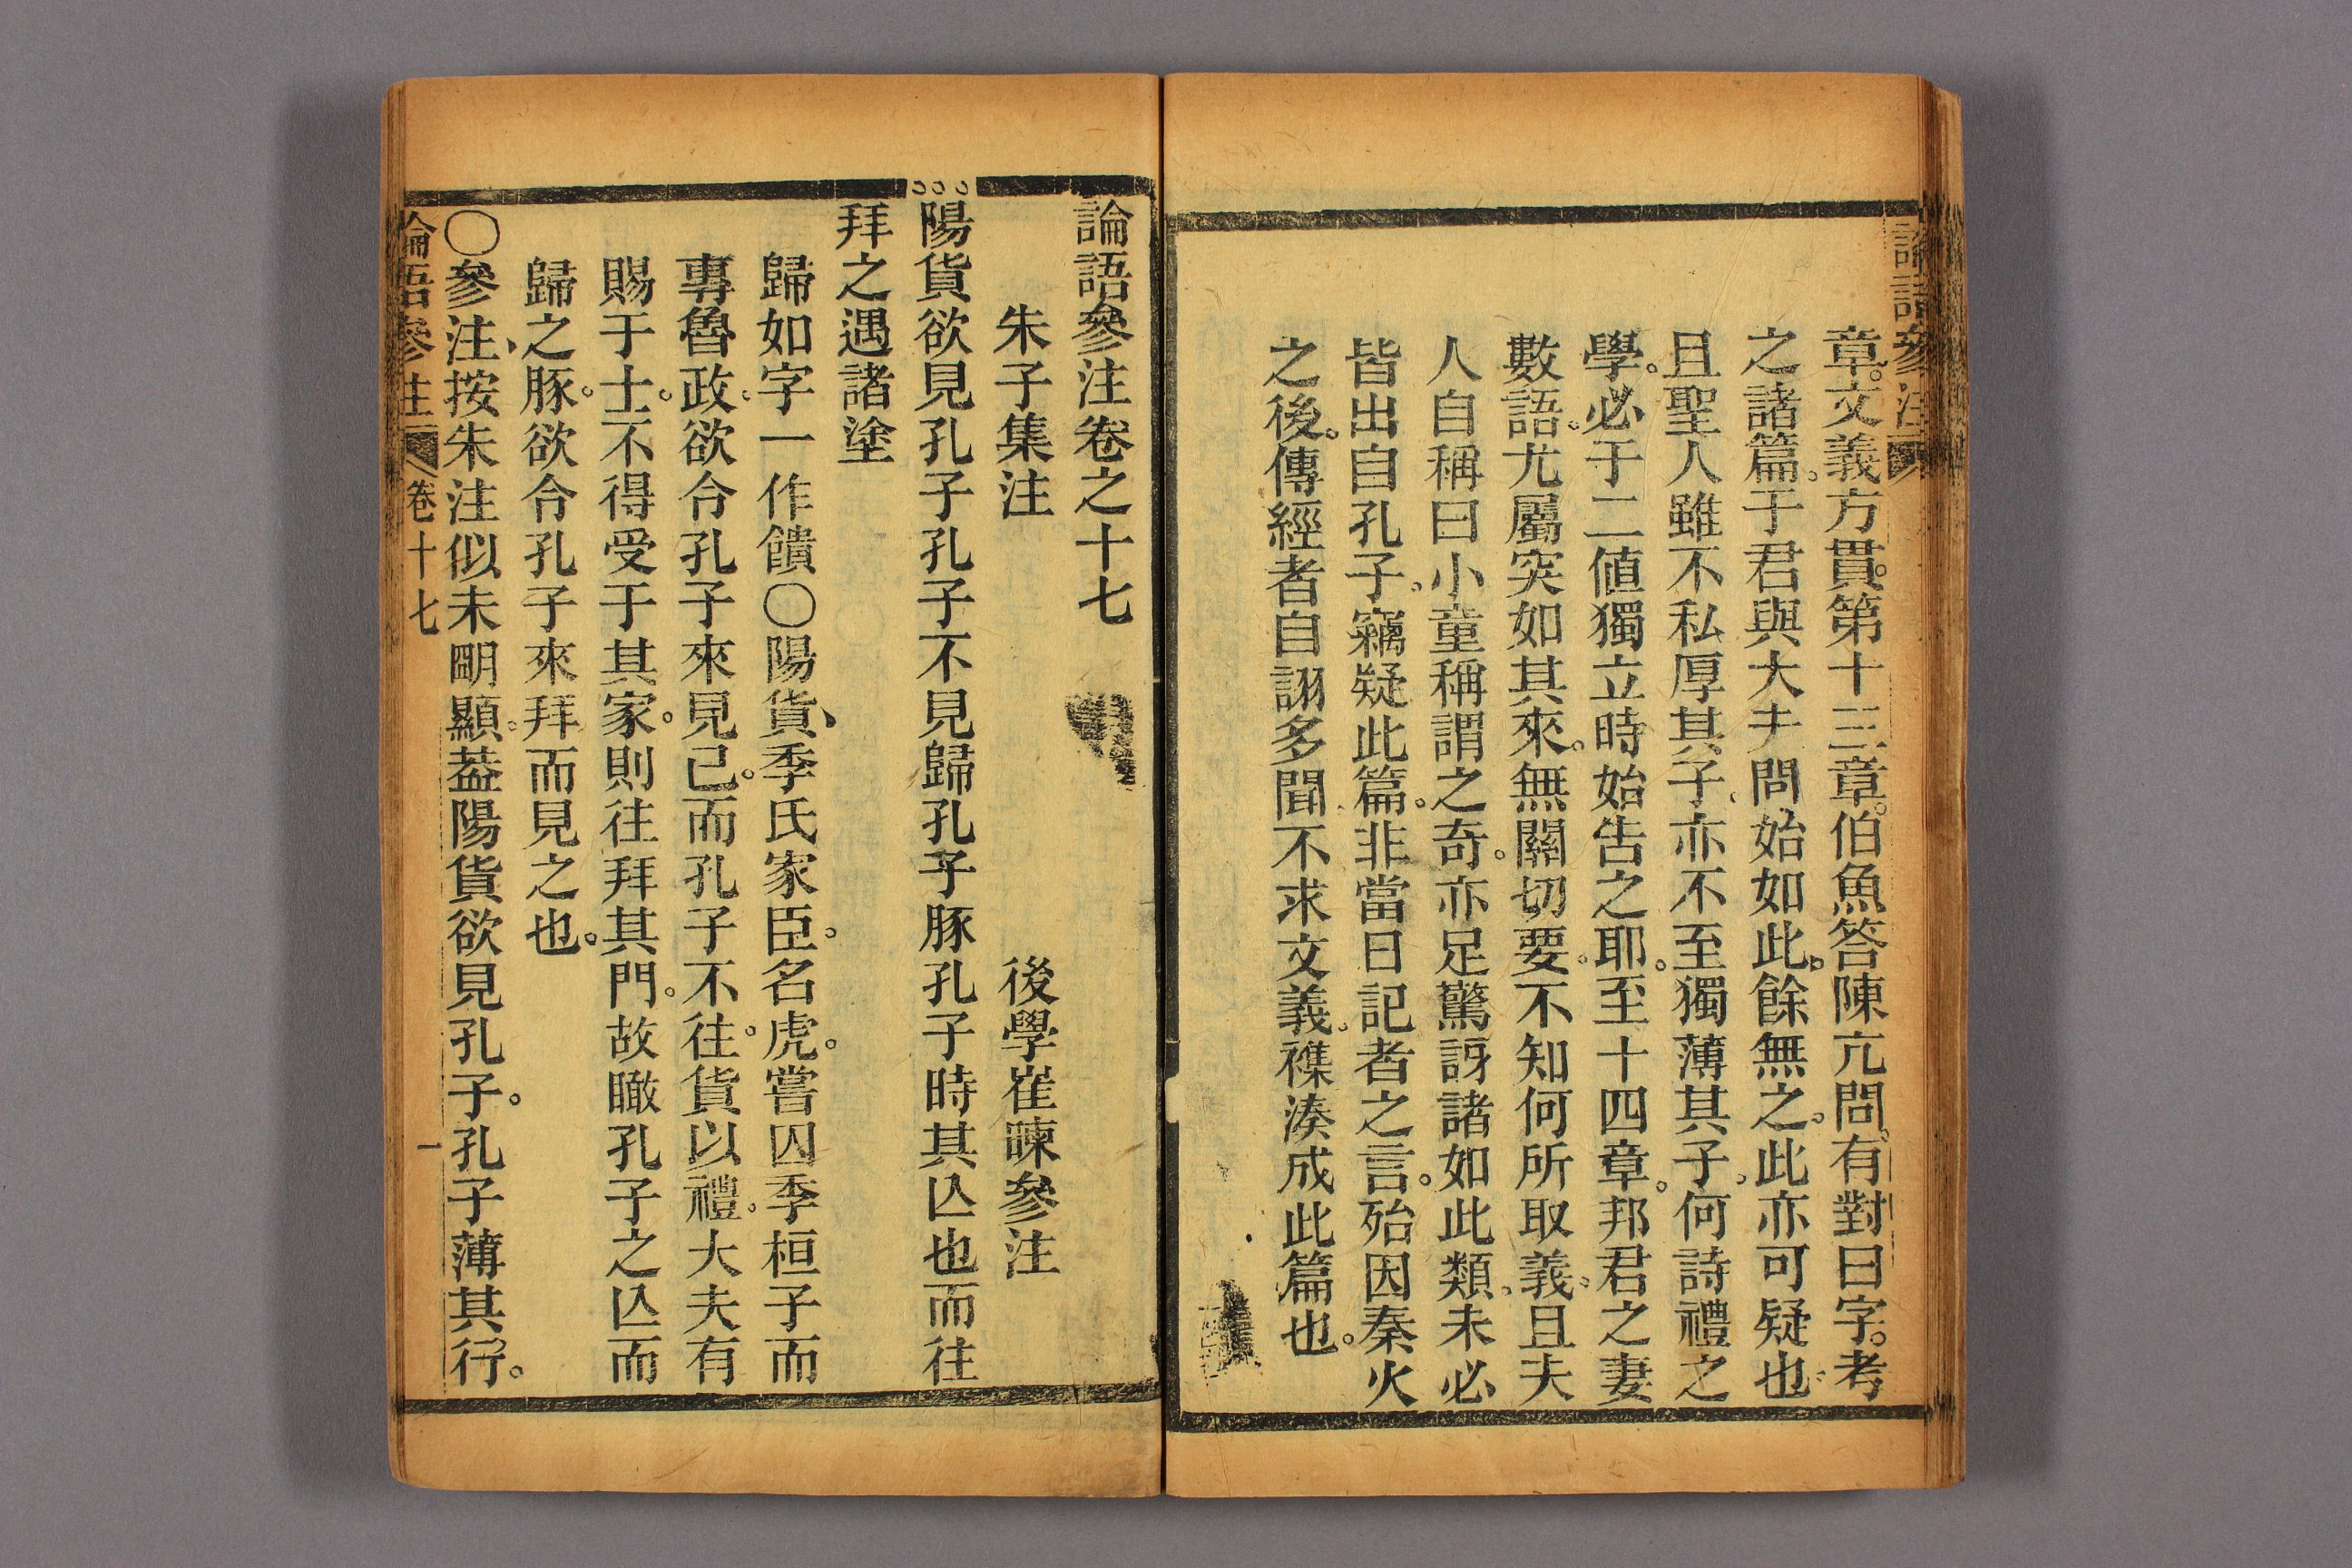 論語參注
章。文義方貫。第十三章。伯魚答陳亢問。有對曰字。考
之諸篇。于君與大夫問始如此。餘無之。此亦可疑也。
且聖人雖不私厚其子、亦不至獨薄其子。何詩禮之
學。必于二値獨立時始告之耶。至十四章。邦君之妻
數語。尤屬突如其來。無關切要。不知何所取義。且夫
人自稱曰小童稱謂之奇。亦足驚訝諸如此類、未必
皆出自孔子。竊疑此篇。非當日記者之言。殆因秦火
之後。傳經者自詡多聞不求文義。襍湊成此篇也。
論語參注卷之十七
朱子集注 後學崔暕參注
陽貨欲見孔子孔子不見歸孔子豚孔子時其亾也而往
拜之遇諸塗
歸如字一作饋〇陽貨、季氏家臣。名虎。嘗囚季桓子而
專魯政。欲令孔子來見己。而孔子不往。貨以禮。大夫有
賜于士。不得受于其家。則往拜其門。故瞰孔子之亾而
歸之豚。欲令孔子來拜而見之也。
〇參注、按朱注似未朙顯。葢陽貨欲見孔子。孔子薄其行。
論語參注 卷十七 一